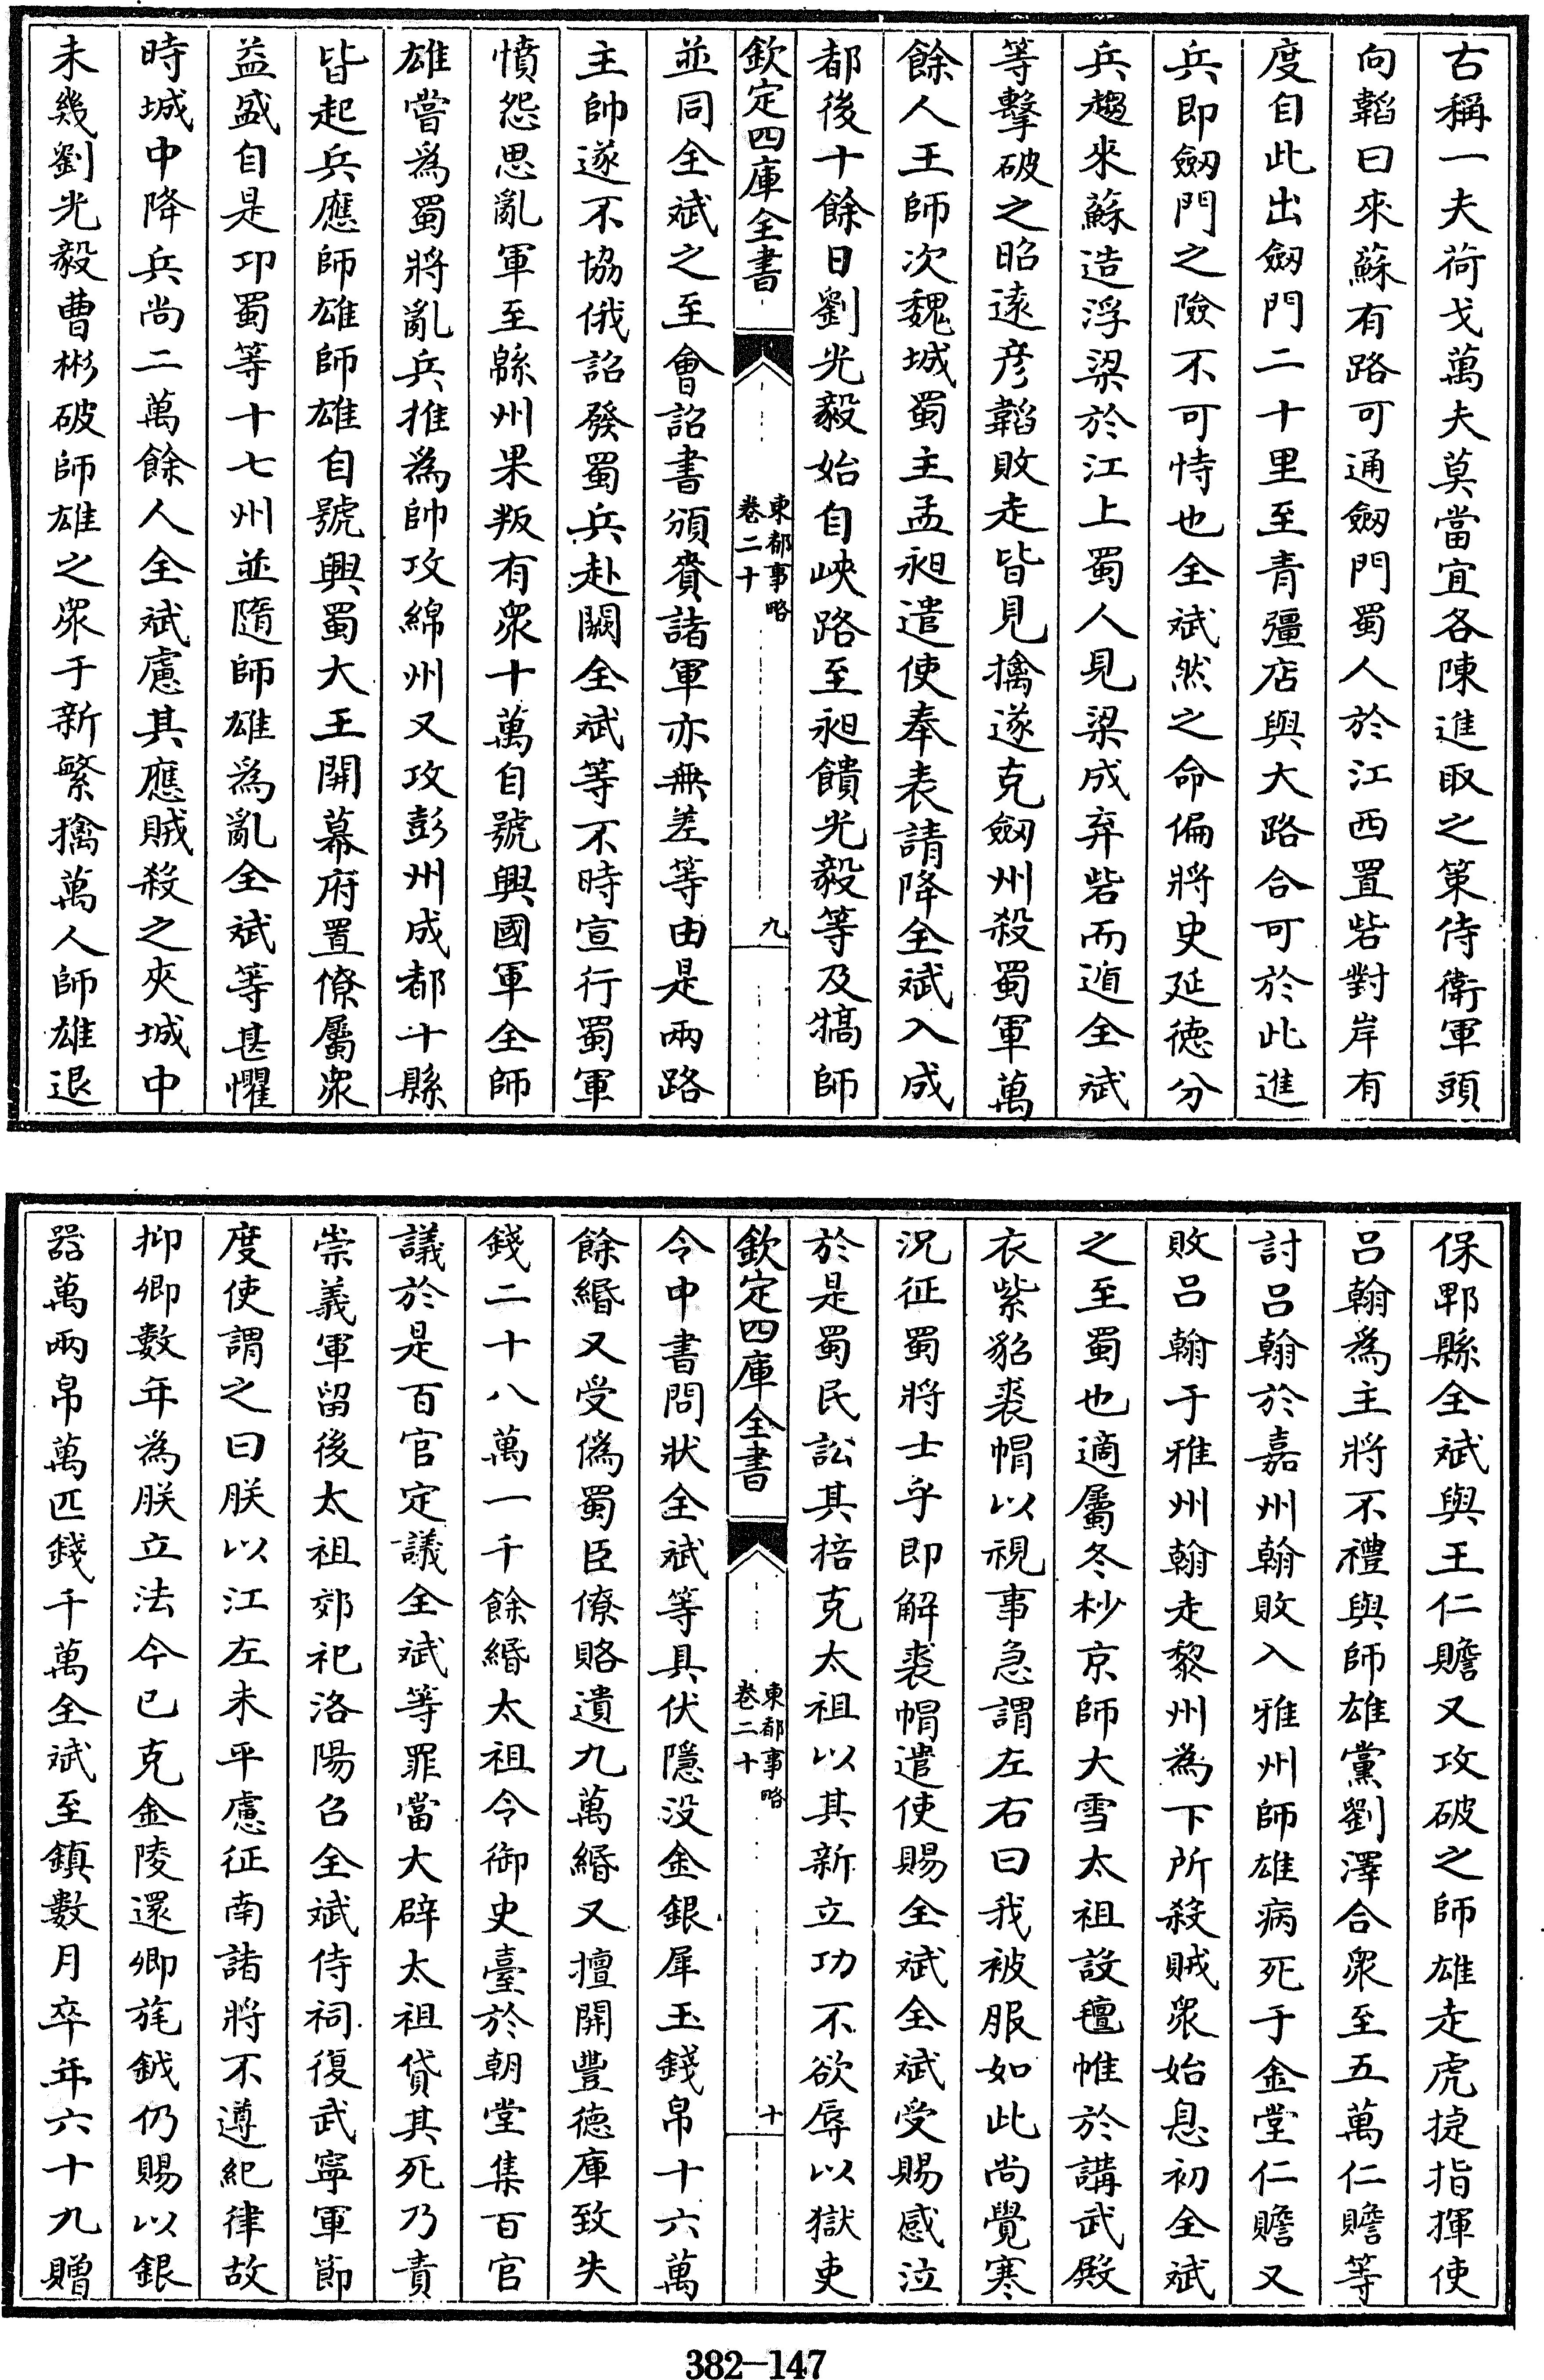 古稱一夫荷戈萬夫莫當宜各陳進取之策侍衛軍頭
向韜曰來蘇有路可通劒門蜀人於江西置砦對岸有
度自此出劒門二十里至青彊店與大路合可於此進
兵即劒門之險不可恃也全斌然之命偏將史延德分
兵趨來蘇造浮梁於江上蜀人見梁成弃砦而遁全斌
等擊破之昭遠彦韜敗走皆見擒遂克劒州殺蜀軍萬
餘人王師次魏城蜀主孟昶遣使奉表請降全斌入成
都後十餘日劉光毅始自峽路至昶饋光毅等及犒師
欽定四庫全書
東都事略
卷二十
九
並同全斌之至會詔書頒賚諸軍亦無差等由是兩路
主帥遂不協俄詔發蜀兵赴闕全斌等不時宣行蜀軍
憤怨思亂軍至緜州果叛有衆十萬自號興國軍全師
雄嘗為蜀將亂兵推為帥攻綿州又攻彭州成都十縣
皆起兵應師雄師雄自號興蜀大王開幕府置僚屬衆
益盛自是邛蜀等十七州並隨師雄為亂全斌等甚懼
時城中降兵尚二萬餘人全斌慮其應賊殺之夾城中
未幾劉光毅曹彬破師雄之衆于新繁擒萬人師雄退
保郫縣全斌與王仁贍又攻破之師雄走虎捷指揮使
吕翰為主將不禮與師雄黨劉澤合衆至五萬仁贍等
討吕翰於嘉州翰敗入雅州師雄病死于金堂仁贍又
敗吕翰于雅州翰走黎州為下所殺賊衆始息初全斌
之至蜀也適屬冬杪京師大雪太祖設氊帷於講武殿
衣紫貂裘帽以視事急謂左右曰我被服如此尚覺寒
況征蜀將士乎即解裘帽遣使賜全斌全斌受賜感泣
於是蜀民訟其掊克太祖以其新立功不欲辱以獄吏
欽定四庫全書
東都事略
卷二十
十
令中書問狀全斌等具伏隱没金銀犀玉錢帛十六萬
餘緡又受偽蜀臣僚賂遺九萬緡又擅開豐德庫致失
錢二十八萬一千餘緡太祖令御史臺於朝堂集百官
議於是百官定議全斌等罪當大辟太祖貸其死乃責
崇義軍留後太祖郊祀洛陽召全斌侍祠復武寧軍節
度使謂之曰朕以江左未平慮征南諸將不遵紀律故
抑卿數年為朕立法今已克金陵還卿旄鉞仍賜以銀
器萬兩帛萬匹錢千萬全斌至鎮數月卒年六十九贈
382-147